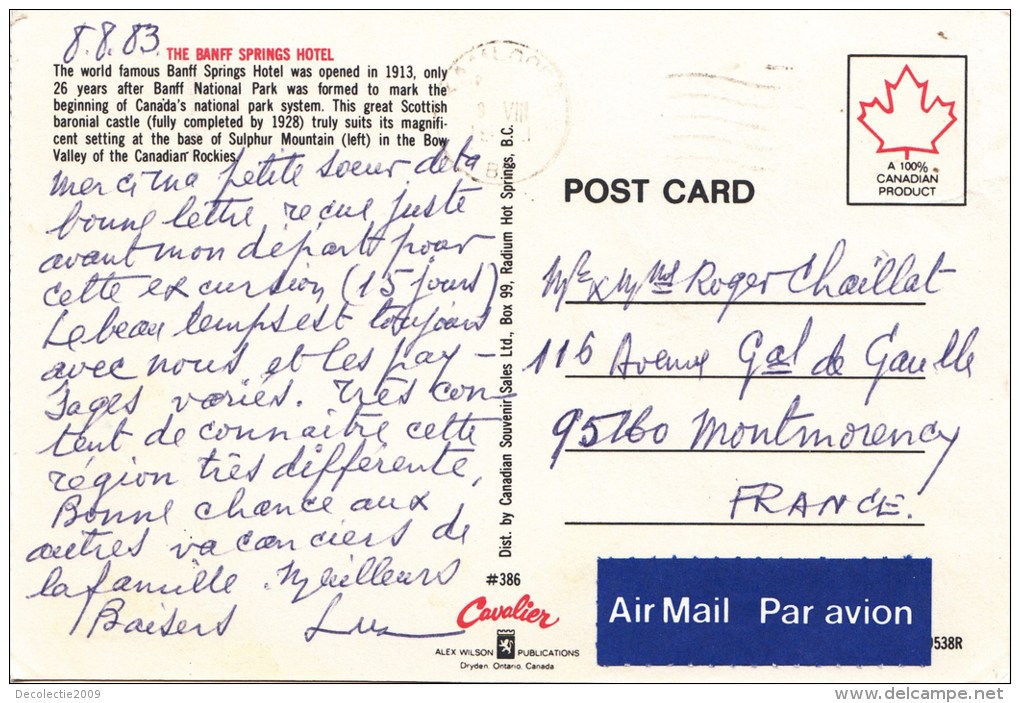 8.8.83.
THE BANFF SPRINGS HOTEL
The world famous Banff Springs Hotel was opened in 1913, only
26 years after Banff National Park was formed to mark the
beginning of Canada's national park system. This great Scottish
baronial castle (fully completed by 1928) truly suits its magnifi-
cent setting at the base of Sulphur Mountain (left) in the Bow
Valley of the Canadian Rockies.
Merci ma petite soeur de ta
bonne lettre reçue juste
avant mon départ pour
cette excursion (15 jours)
Le beau temps est toujours
avec nous et les pay-
sages variés. Très con-
tent de connaître cette
région très différente,
Bonne chance aux
autres vacanciers de
la famille. Meilleurs
Baisers
Dist. by Canadian Souvenir Sales Ltd., Box 99, Radium Hot Springs, B.C.
#386
Cavalier
ALEX WILSON PUBLICATIONS
Dryden, Ontario, Canada
VIII
POST CARD
A 100%
CANADIAN
PRODUCT
Mr & Mrs Roger Chaillat
116 Avenue Gal de Gaulle
95160 Montmorency
FRANCE.
Air Mail Par avion
0538R
Decolectie2009
www.delcampe.net